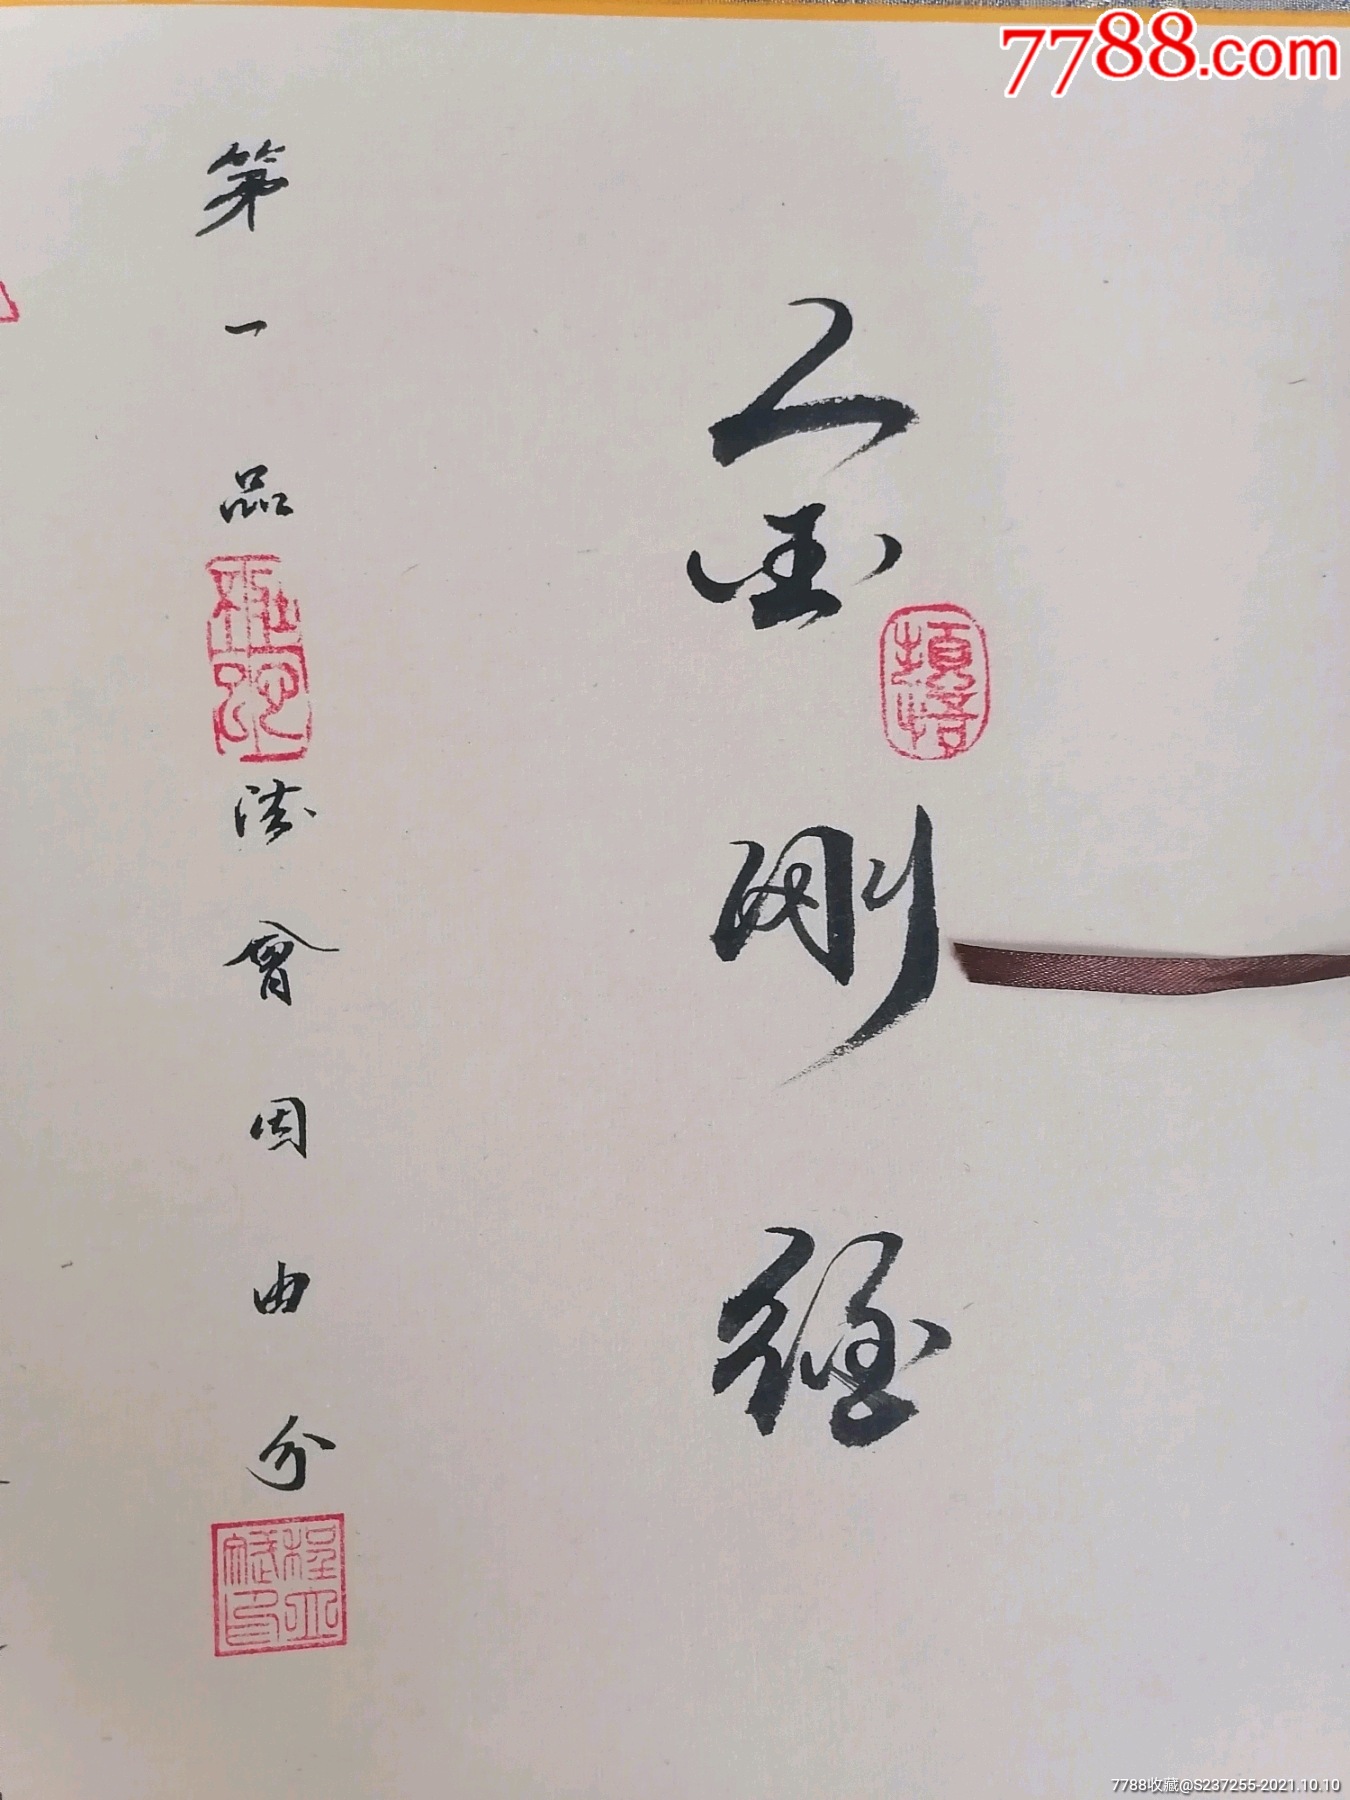 7788.com
金剛經
頓悟
第一品
法會因由分
7788收藏@S237255-2021.10.10